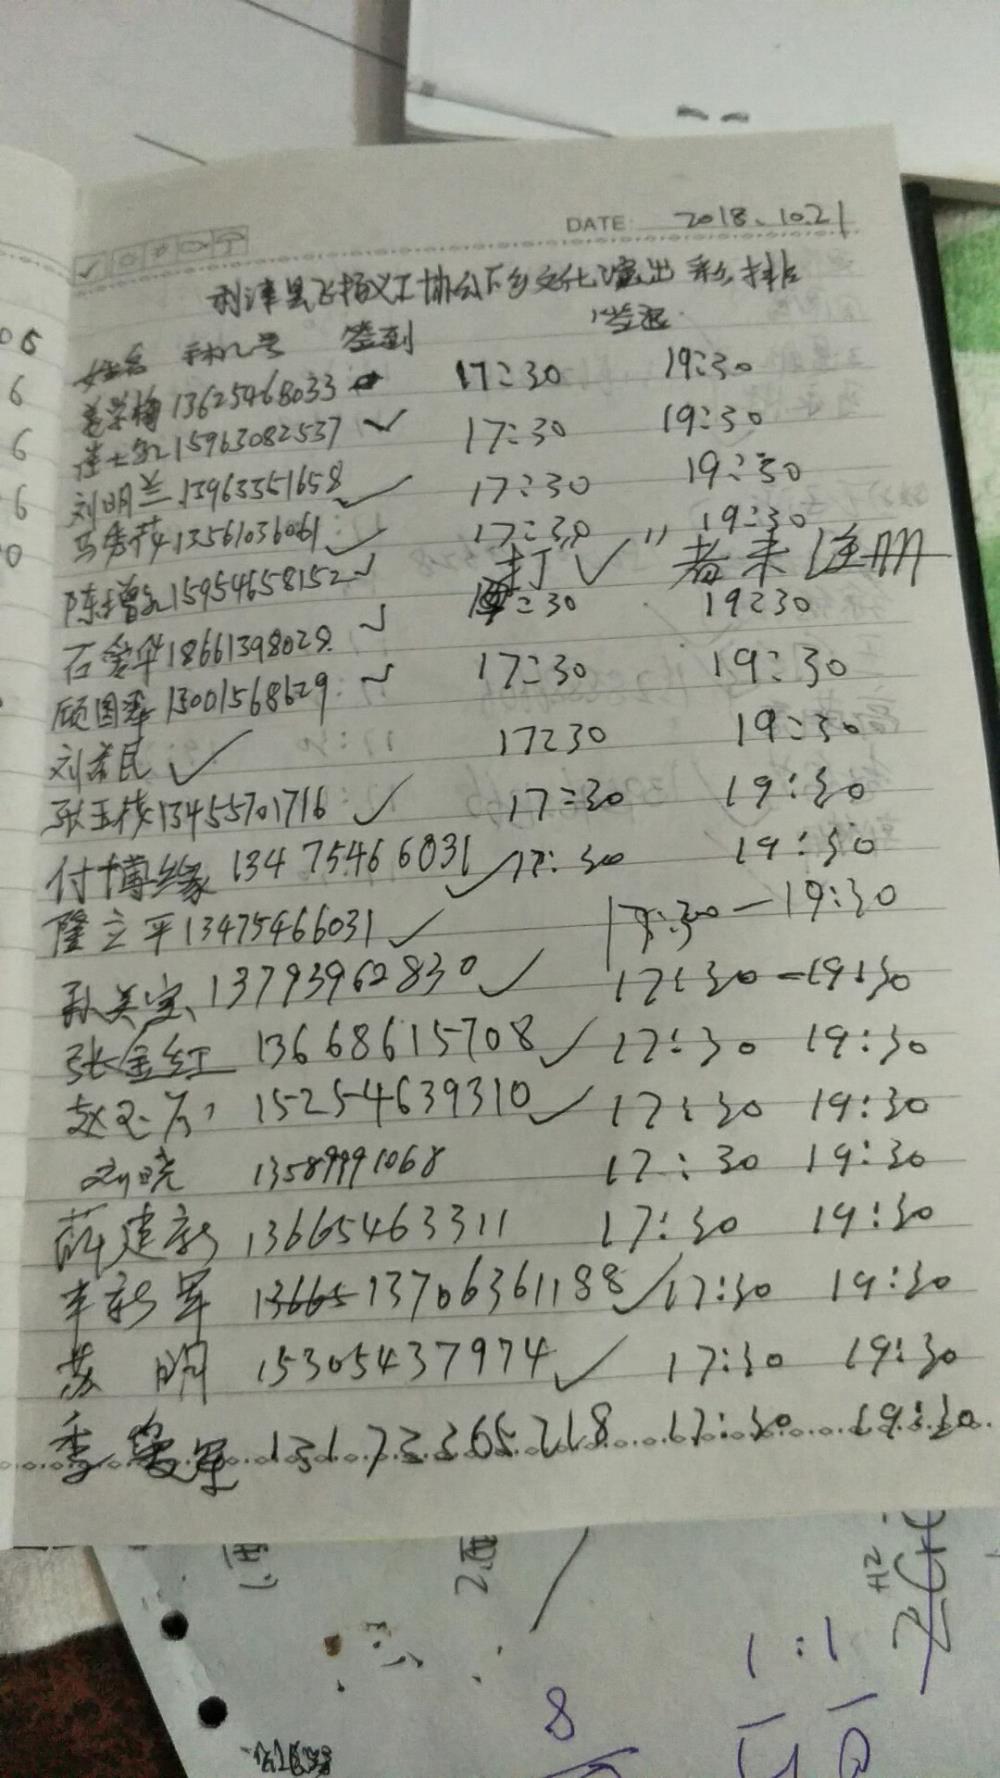 DATE: 2018.10.21
利津县飞扬义工协会下乡文化演出彩排
姓名 手机号 签到 签退
13625468033 17:30 19:30
15963082537 ✓ 17:30 19:30
刘明兰 13963351658 ✓ 17:30 19:30
马秀花 13561036061 ✓ 17:30 19:30
打✓"者未注册
陈增 15954658152 ✓ 17:30 19:30
石爱华 18661398028 ✓ 17:30 19:30
顾国华 13001568629 ✓ 17:30 19:30
刘希民 ✓
张玉梅 13455701716 ✓ 17:30 19:30
付博缘 13475466031 ✓ 17:30 19:30
隆立平 13475466031 ✓ 17:30—19:30
孙美宝 13793962830 ✓ 17:30—19:30
张金红 13668615708 ✓ 17:30 19:30
赵玉芳 15254639310 ✓ 17:30 19:30
刘晓 13589991068 17:30 19:30
薛建新 13665463311 17:30 19:30
丰新军 13665 13706361188 ✓ 17:30 19:30
苏明 15305437974 ✓ 17:30 19:30
季爱军 13173365218 17:30 19:30
1:1
8